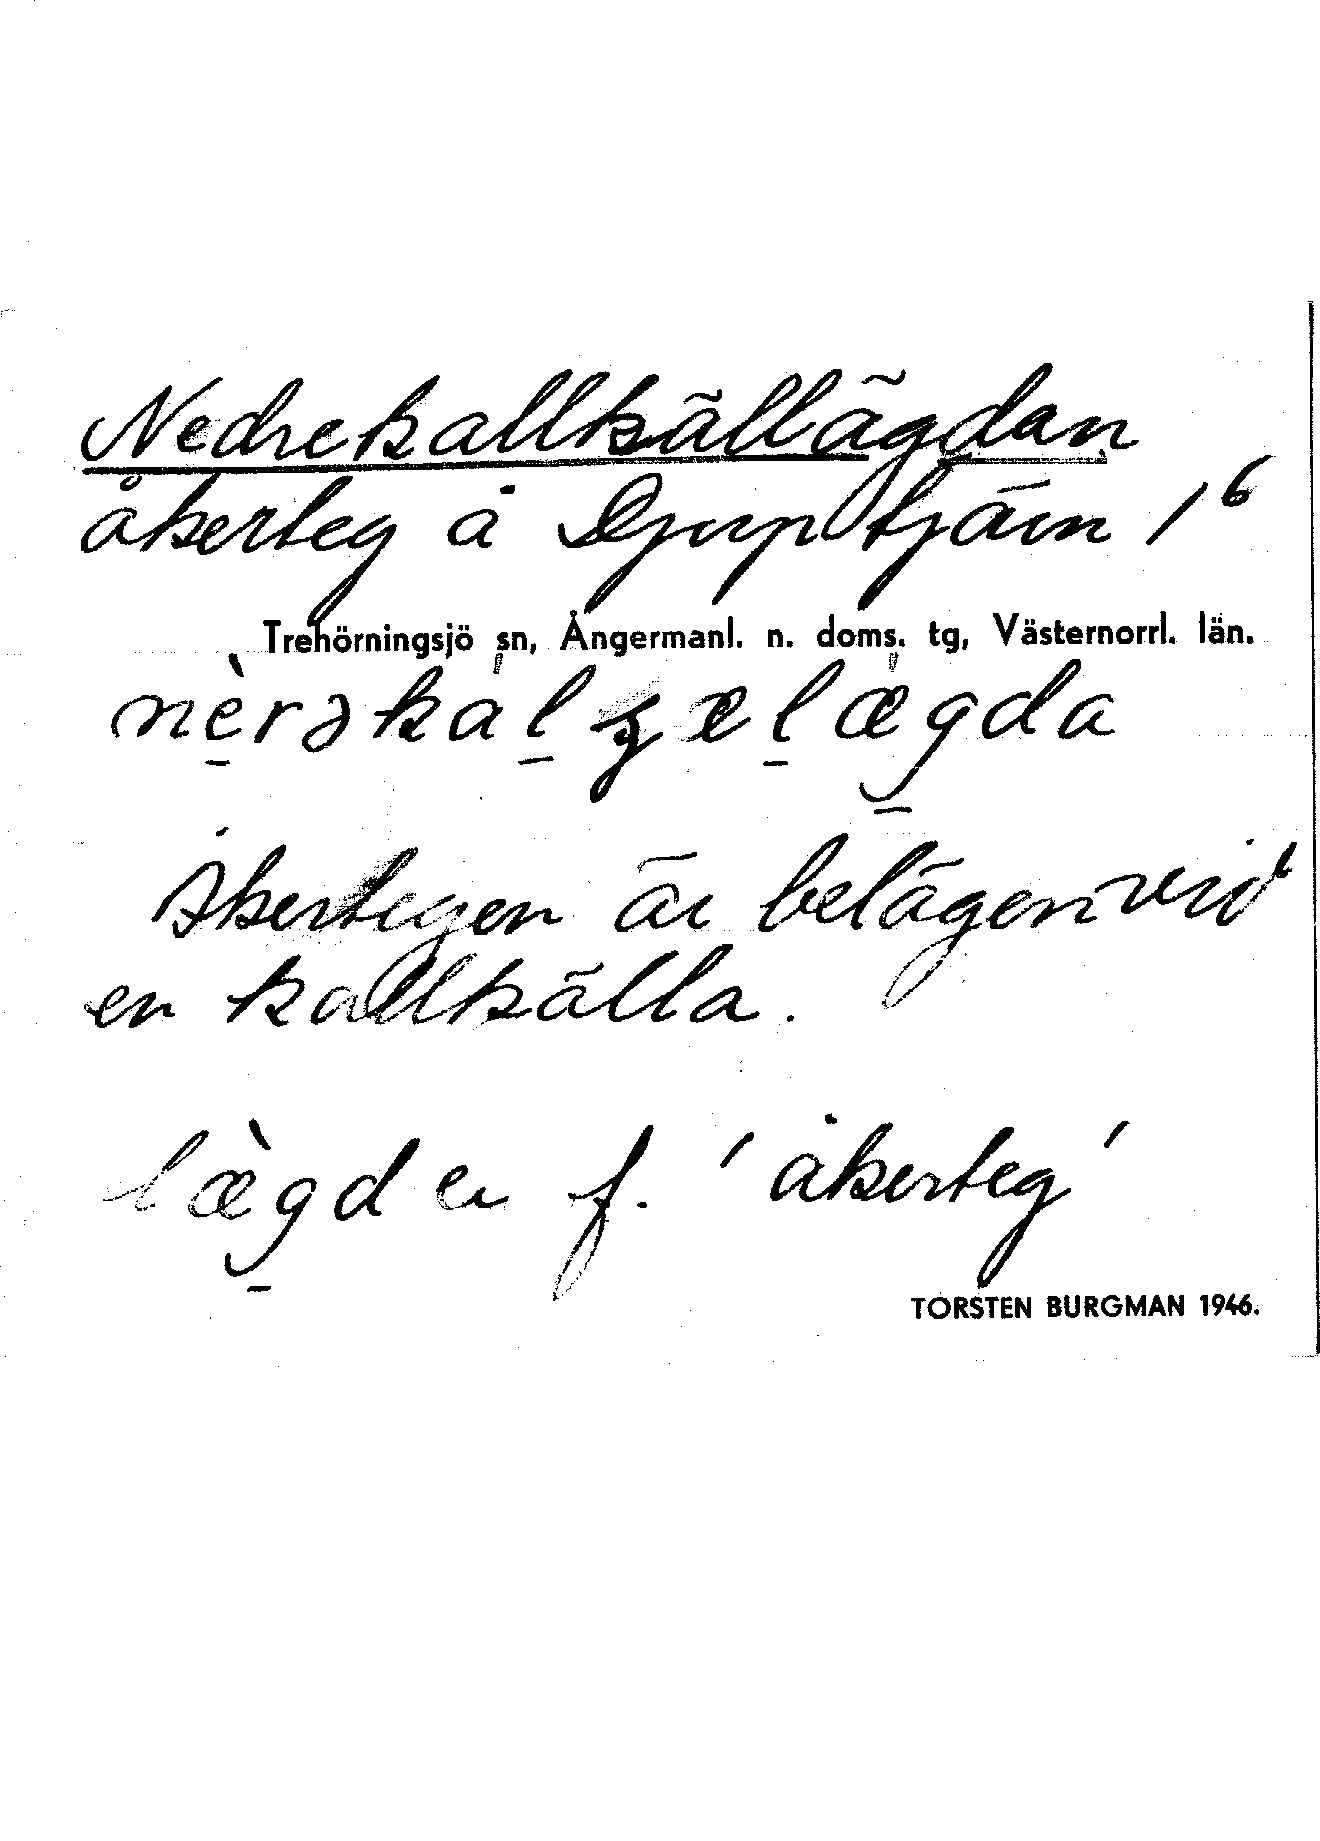 Nedrekallkällägdan
åkerteg å Djuptjärn 1⁶
Trehörningsjö sn, Ångermanl. n. doms. tg, Västernorrl. län.
Åkertegen är belägen vid
en kallkälla.
f. 'åkerteg'
TORSTEN BURGMAN 1946.